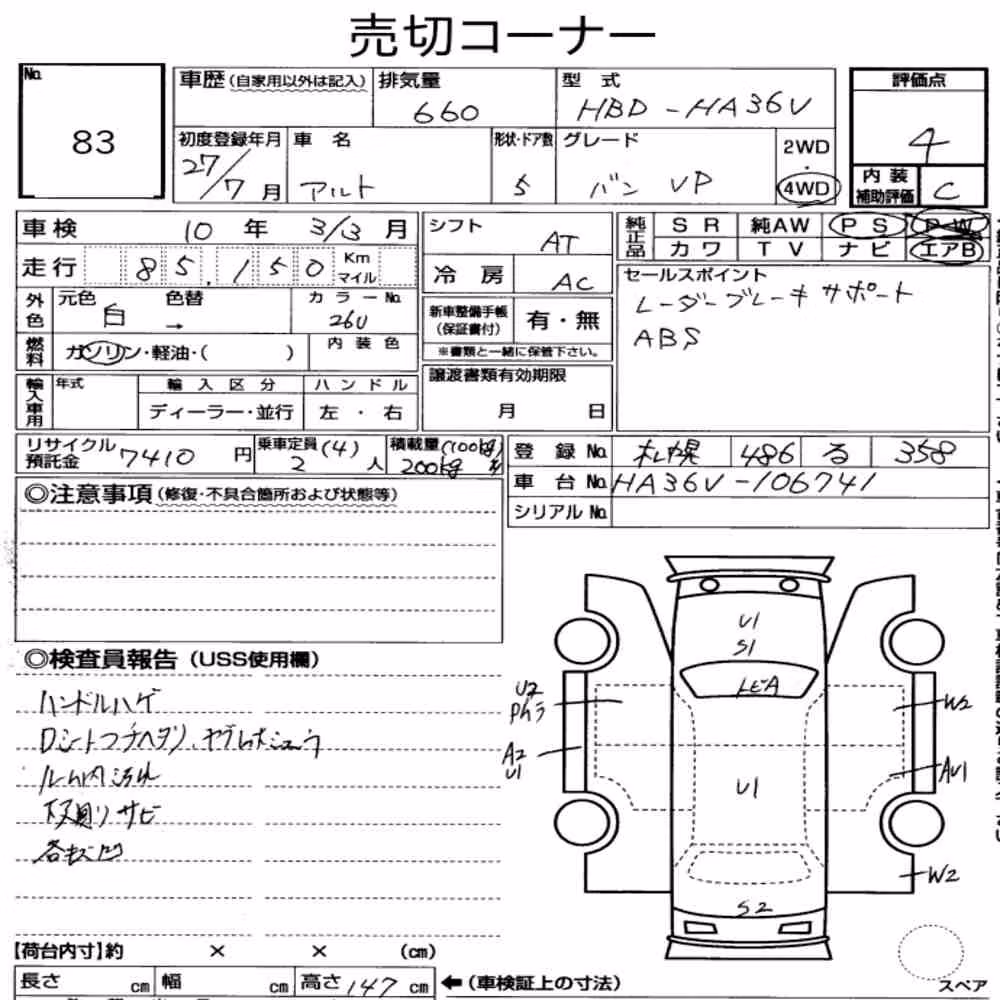 売切コーナー
No.
83
車歴(自家用以外は記入)
排気量
660
型式
HBD-HA36V
評価点
4
初度登録年月
27/7月
車名
アルト
形状・ドア数
5
グレード
バン VP
2WD
4WD
内装
補助評価
C
車検
10年3/3月
シフト
AT
純正品
SR
純AW
PS
PW
カワ
TV
ナビ
エアB
走行
85,150
Km
マイル
冷房
AC
セールスポイント
レーダーブレーキサポート
ABS
外色
元色
白
色替
→
カラーNo.
26U
新車整備手帳
(保証書付)
有・無
※書類と一緒に保管下さい。
燃料
ガソリン・軽油・( )
内装色
輸入車用
年式
輸入区分
ハンドル
ディーラー・並行
左・右
譲渡書類有効期限
月 日
リサイクル
預託金
7410円
乗車定員(4)
2人
積載量(100kg)
200kg
登録No.
札幌
486
る
358
車台No.
HA36V-106741
シリアルNo.
◎注意事項(修復・不具合箇所および状態等)
◎検査員報告(USS使用欄)
ハンドルハゲ
ルーム内汚れ
下廻リサビ
各キズ凹
U1
S1
U2
A2
U1
U1
W2
AU1
W2
S2
【荷台内寸】約 × × (cm)
長さ cm
幅 cm
高さ147cm
←(車検証上の寸法)
スペア